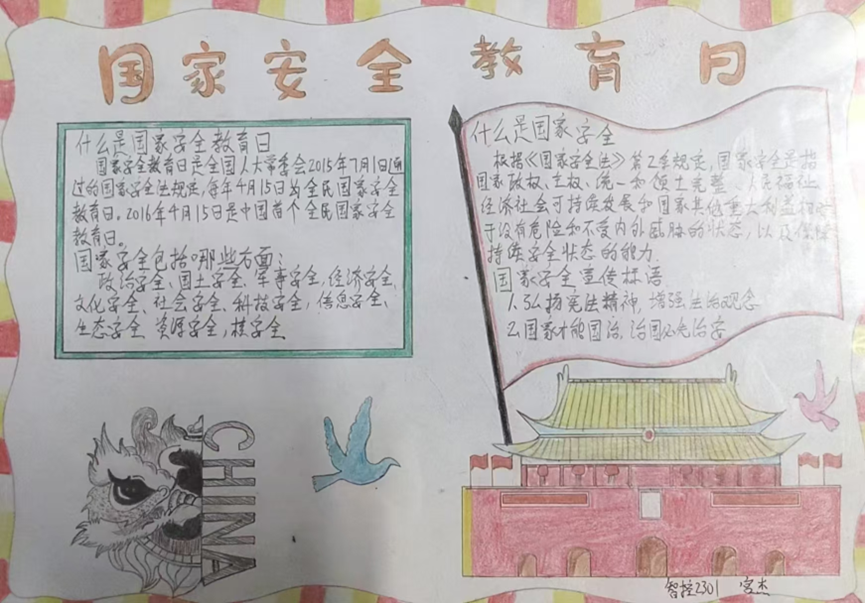 国家安全教育日
什么是国家安全教育日
国家安全教育日是全国人大常委会2015年7月1日通
过的国家安全法规定,每年4月15日为全民国家安全
教育日。2016年4月15日是中国首个全民国家安全
教育日。
国家安全包括哪些方面:
政治安全、国土安全、军事安全、经济安全、
文化安全、社会安全、科技安全、信息安全、
生态安全、资源安全,核安全
什么是国家安全
根据《国家安全法》第2条规定,国家安全是指
国家政权、主权、统一和领土完整、人民福祉、
经济社会可持续发展和国家其他重大利益相对
于没有危险和不受内外威胁的状态,以及保障
持续安全状态的能力.
国家安全宣传标语
1.弘扬宪法精神,增强法治观念
2.国家才能国治,治国必先治安
CHINA
智控2301 杰